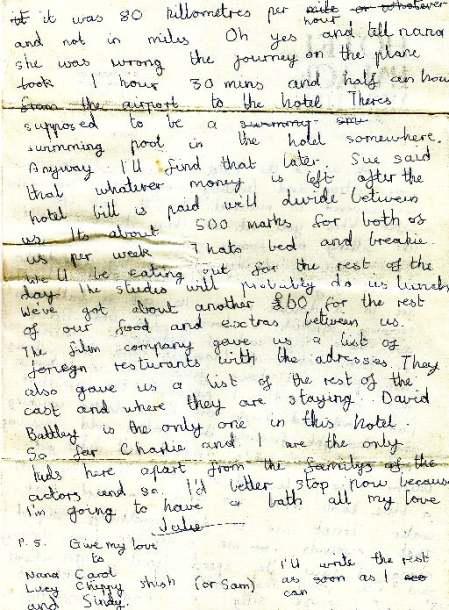 it it was 80 killometres per mile or whatever
hour
and not in miles Oh yes and tell nana
she was wrong the journey on the plane
took 1 hour 30 mins and half an hour
from the airport to the hotel Theres
supposed to be a swimmg
swimming pool in the hotel somewhere.
Anyway I'll find that later. Sue said
that whatever money is left after the
hotel bill is paid we'll divide between
us. Its about 500 marks for both of
us per week Thats bed and breakie.
We'll be eating out for the rest of the
day The studio will probably do us lunch
We've got about another £60 for the rest
of our food and extras between us.
The film company gave us a list of
foriegn resturants with the adresses. They
also gave us a list of the rest of the
cast and where they are staying. David
Battley is the only one in this hotel.
So far Charlie and I are the only
kids here apart from the familys of the
actors and so I'd better stop now because
I'm going to have a bath all my love
Julie
P.S. Give my love
to
Nana Carol
Lucy Chippy shish (or Sam)
and Sindy.
I'll write the rest
as soon as I
can